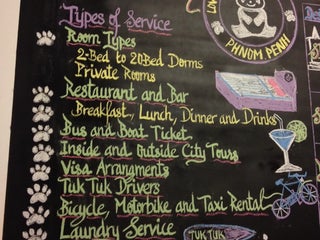 Types of Service
PHNOM PENH
Room Types
2-Bed to 20Bed Dorms
Private Rooms
Restaurant and Bar
Breakfast, Lunch, Dinner and Drinks
Bus and Boat Ticket
Inside and Outside City Tours
Visa Arrangments
Tuk Tuk Drivers
Bicycle, Motorbike and Taxi Rental
Laundry Service
TUK TUK